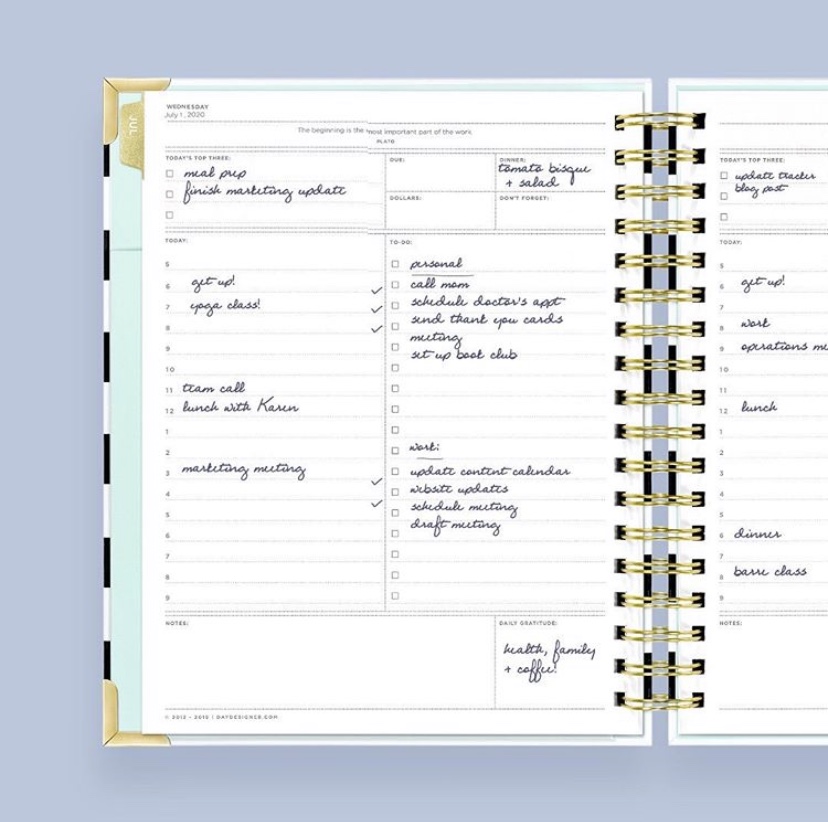 JUL
WEDNESDAY
July 1, 2020
The beginning is the most important part of the work.
PLATO
TODAY'S TOP THREE:
meal prep
finish marketing update
DUE:
DOLLARS:
DINNER:
tomato bisque
+ salad
DON'T FORGET:
TODAY:
5
6 get up!
7 yoga class!
8
9
10
11 team call
12 lunch with Karen
1
2
3 marketing meeting
4
5
6
7
8
9
TO-DO:
personal
call mom
schedule doctor's appt
send thank you cards
meeting
set up book club
work:
update content calendar
website updates
schedule meeting
draft meeting
NOTES:
DAILY GRATITUDE:
health, family
+ coffee!
© 2012 - 2019 | DAYDESIGNER.COM
TODAY'S TOP THREE:
update tracker
blog post
TODAY:
5
6 get up!
7
8 work
9 operations me
10
11
12 lunch
1
2
3
4
5
6 dinner
7
8 barre class
9
NOTES: